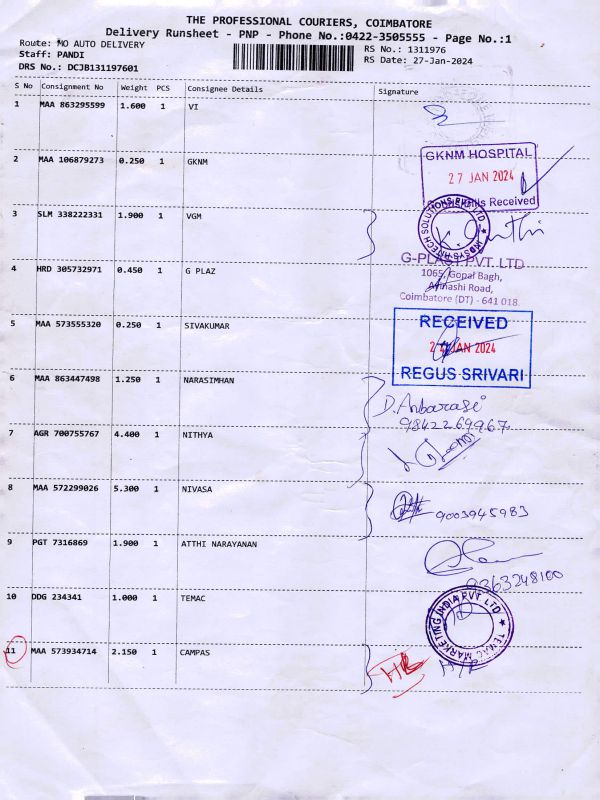 THE PROFESSIONAL COURIERS, COIMBATORE
Delivery Runsheet - PNP - Phone No.:0422-3505555 - Page No.:1
Route: MO AUTO DELIVERY
RS No.: 1311976
Staff: PANDI
RS Date: 27-Jan-2024
DRS No.: DCJB131197601
S No Consignment No Weight PCS Consignee Details Signature
1 MAA 863295599 1.600 1 VI
2 MAA 106879273 0.250 1 GKNM
GKNM HOSPITAL
27 JAN 2024
Received
3 SLM 338222331 1.900 1 VGM
4 HRD 305732971 0.450 1 G PLAZ
G-PLAST PVT. LTD
1065, Gopal Bagh,
Avinashi Road,
Coimbatore (DT) - 641 018.
5 MAA 573555320 0.250 1 SIVAKUMAR
RECEIVED
JAN 2024
REGUS SRIVARI
6 MAA 863447498 1.250 1 NARASIMHAN
D. Anbarasi
9842269967
7 AGR 700755767 4.400 1 NITHYA
8 MAA 572299026 5.300 1 NIVASA
9003945983
9 PGT 7316869 1.900 1 ATTHI NARAYANAN
9363248100
10 DDG 234341 1.000 1 TEMAC
TEMAC MARKETING INDIA PVT LTD
11 MAA 573934714 2.150 1 CAMPAS